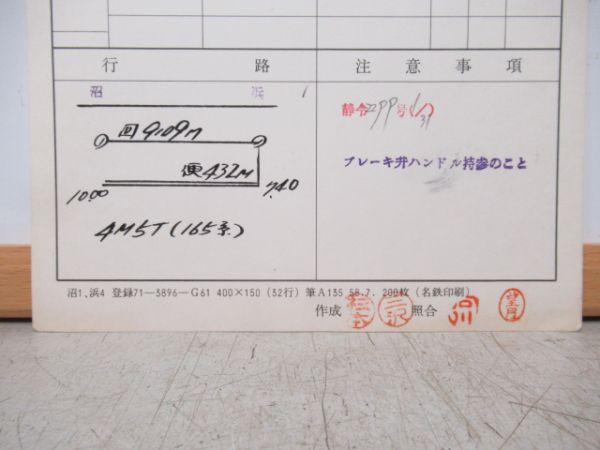 行路
注意事項
沼 浜 1
回9109M
便432M
10.00 7.40
4M5T(165系)
静令299号(1/31)
ブレーキ弁ハンドル持参のこと
沼1、浜4 登録71—3896—G61 400×150 (32行) 筆A135 58.7. 200枚 (名鉄印刷)
作成 三沢 照合